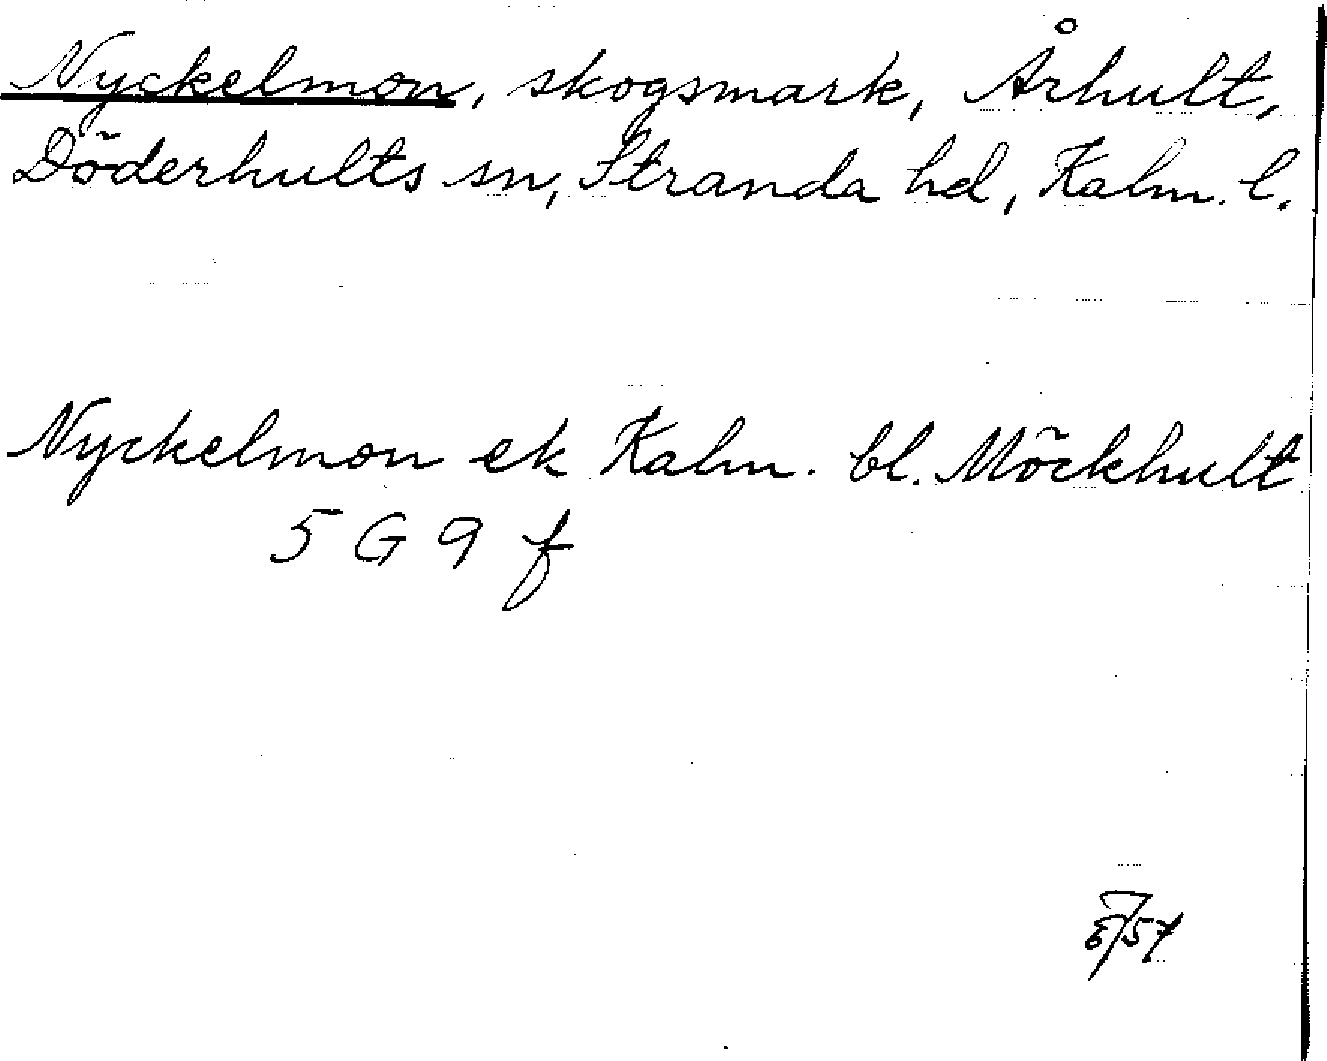 Nyckelmon, skogsmark, Århult,
Döderhults sn, Stranda hd, Kalm. l.
Nyckelmon ek Kalm. bl. Möckhult
5 G 9 f